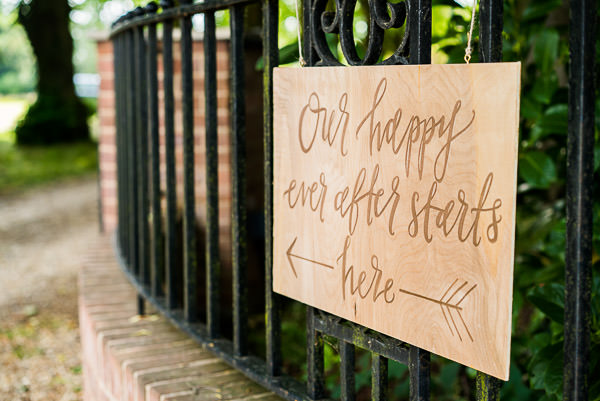 Our happy
ever after starts
here